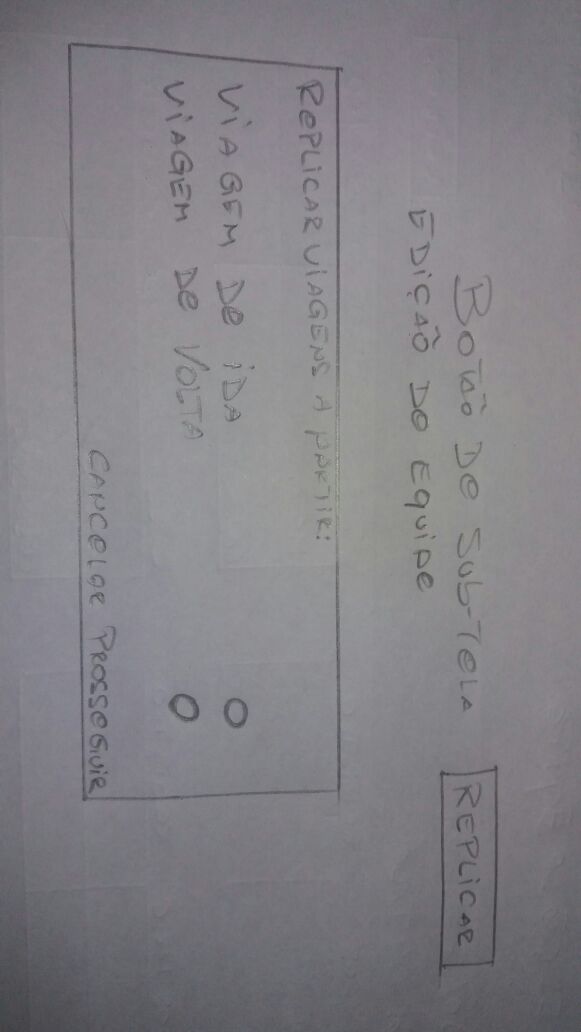 BOTÃO DE SUB-TELA REPLICAR
EDIÇÃO DO EQUIPE
REPLICAR VIAGENS A PARTIR:
VIAGEM DE IDA
VIAGEM DE VOLTA
CANCELAR PROSSEGUIR